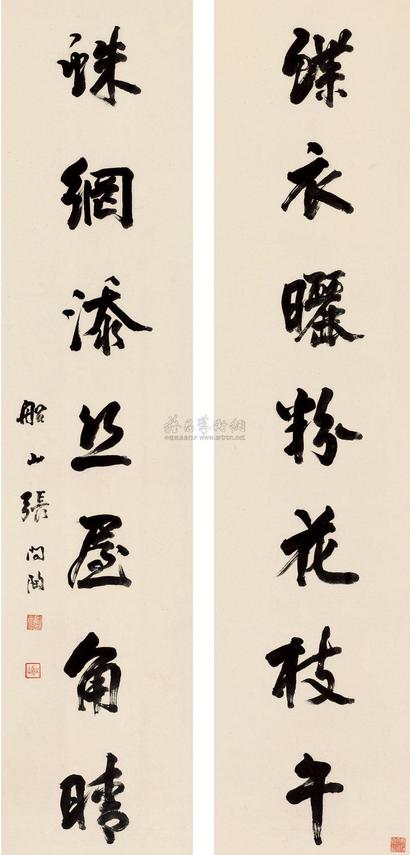 蝶衣曬粉花枝午
蛛網添丝屋角晴
船山張問陶
雅昌藝術網
www.artron.net